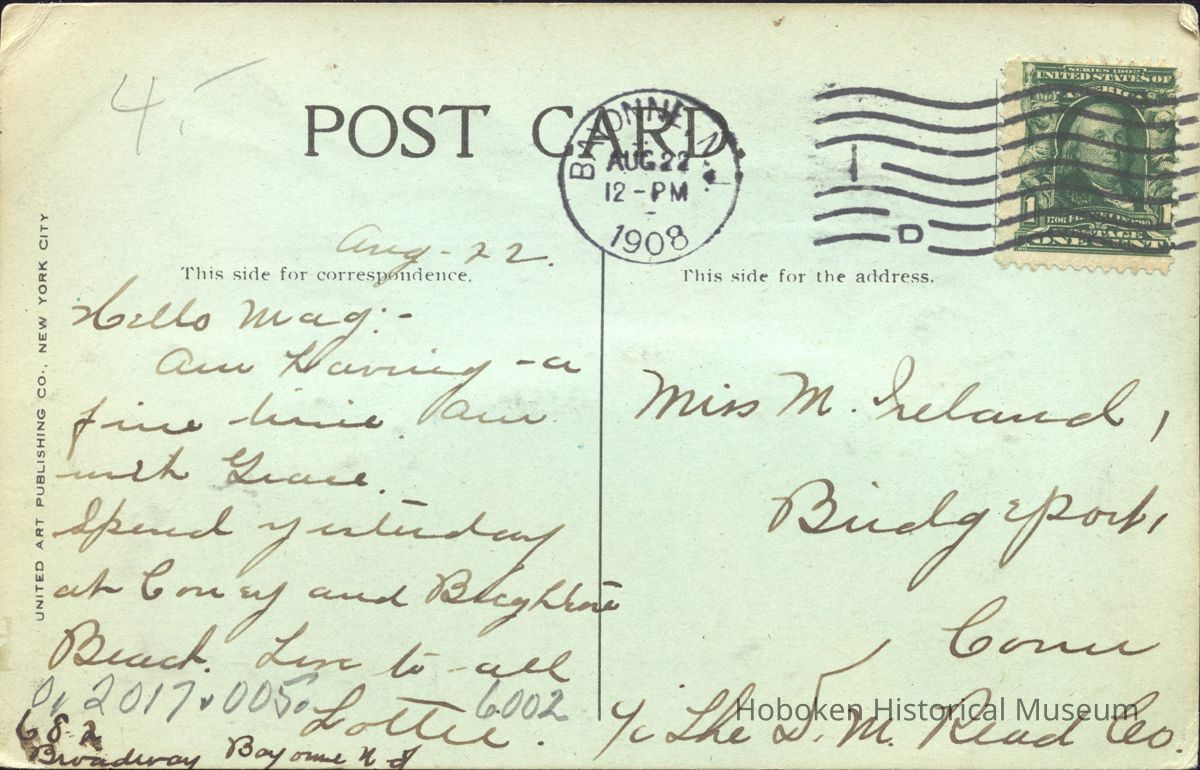 4.
POST CARD
BAYONNE, N.J.
AUG 22
12-PM
1908
D
SERIES 1902
UNITED STATES OF
AMERICA
1 1
1706 FRANKLIN 1790
POSTAGE
ONE CENT
UNITED ART PUBLISHING CO., NEW YORK CITY
Aug-22.
This side for correspondence.
Hello Mag:-
Am Having-a
fine time. Am
with Grace.
Spend yesterday
at Coney and Brighton
Beach. Love to-all
Lottie.
0, 2017.005. 6002
682
Broadway Bayonne N J
This side for the address.
Miss M. Ireland,
Bridgeport,
Conn
c/o The D. M. Read Co.
Hoboken Historical Museum